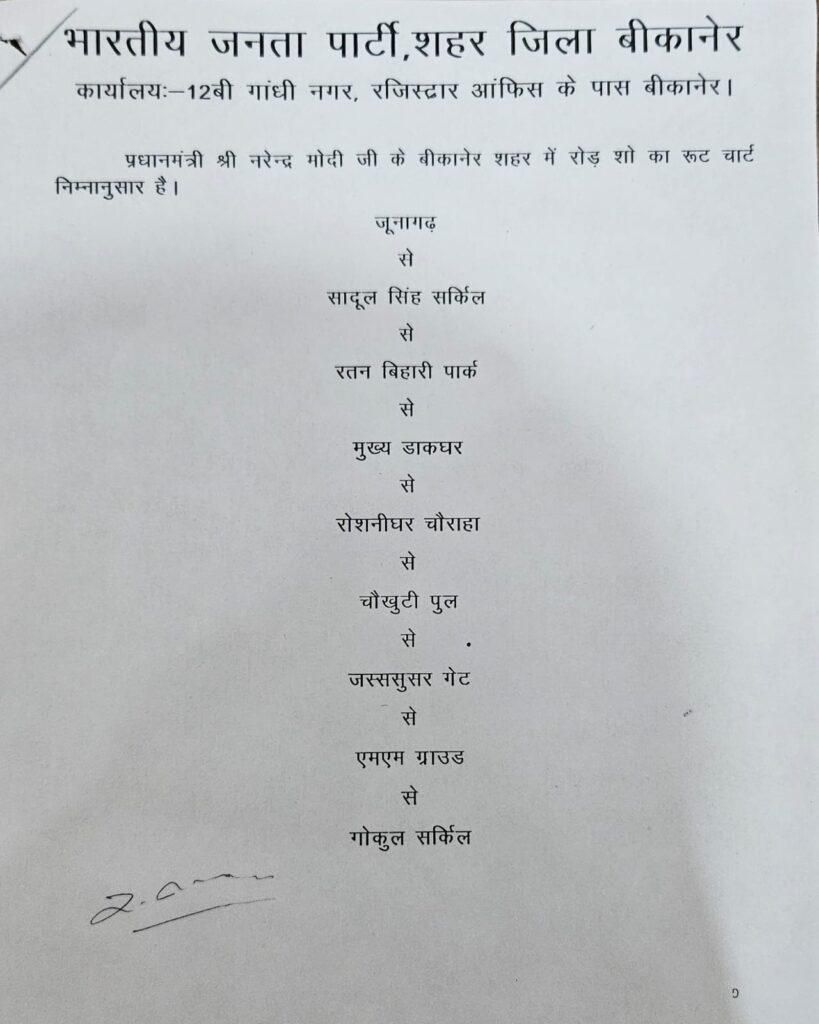 भारतीय जनता पार्टी,शहर जिला बीकानेर
कार्यालयः–12बी गांधी नगर, रजिस्ट्रार आंफिस के पास बीकानेर।
प्रधानमंत्री श्री नरेन्द्र मोदी जी के बीकानेर शहर में रोड़ शो का रूट चार्ट
निम्नानुसार है।
जूनागढ़
से
सादूल सिंह सर्किल
से
रतन बिहारी पार्क
से
मुख्य डाकघर
से
रोशनीघर चौराहा
से
चौखुटी पुल
से
जस्ससुसर गेट
से
एमएम ग्राउड
से
गोकुल सर्किल